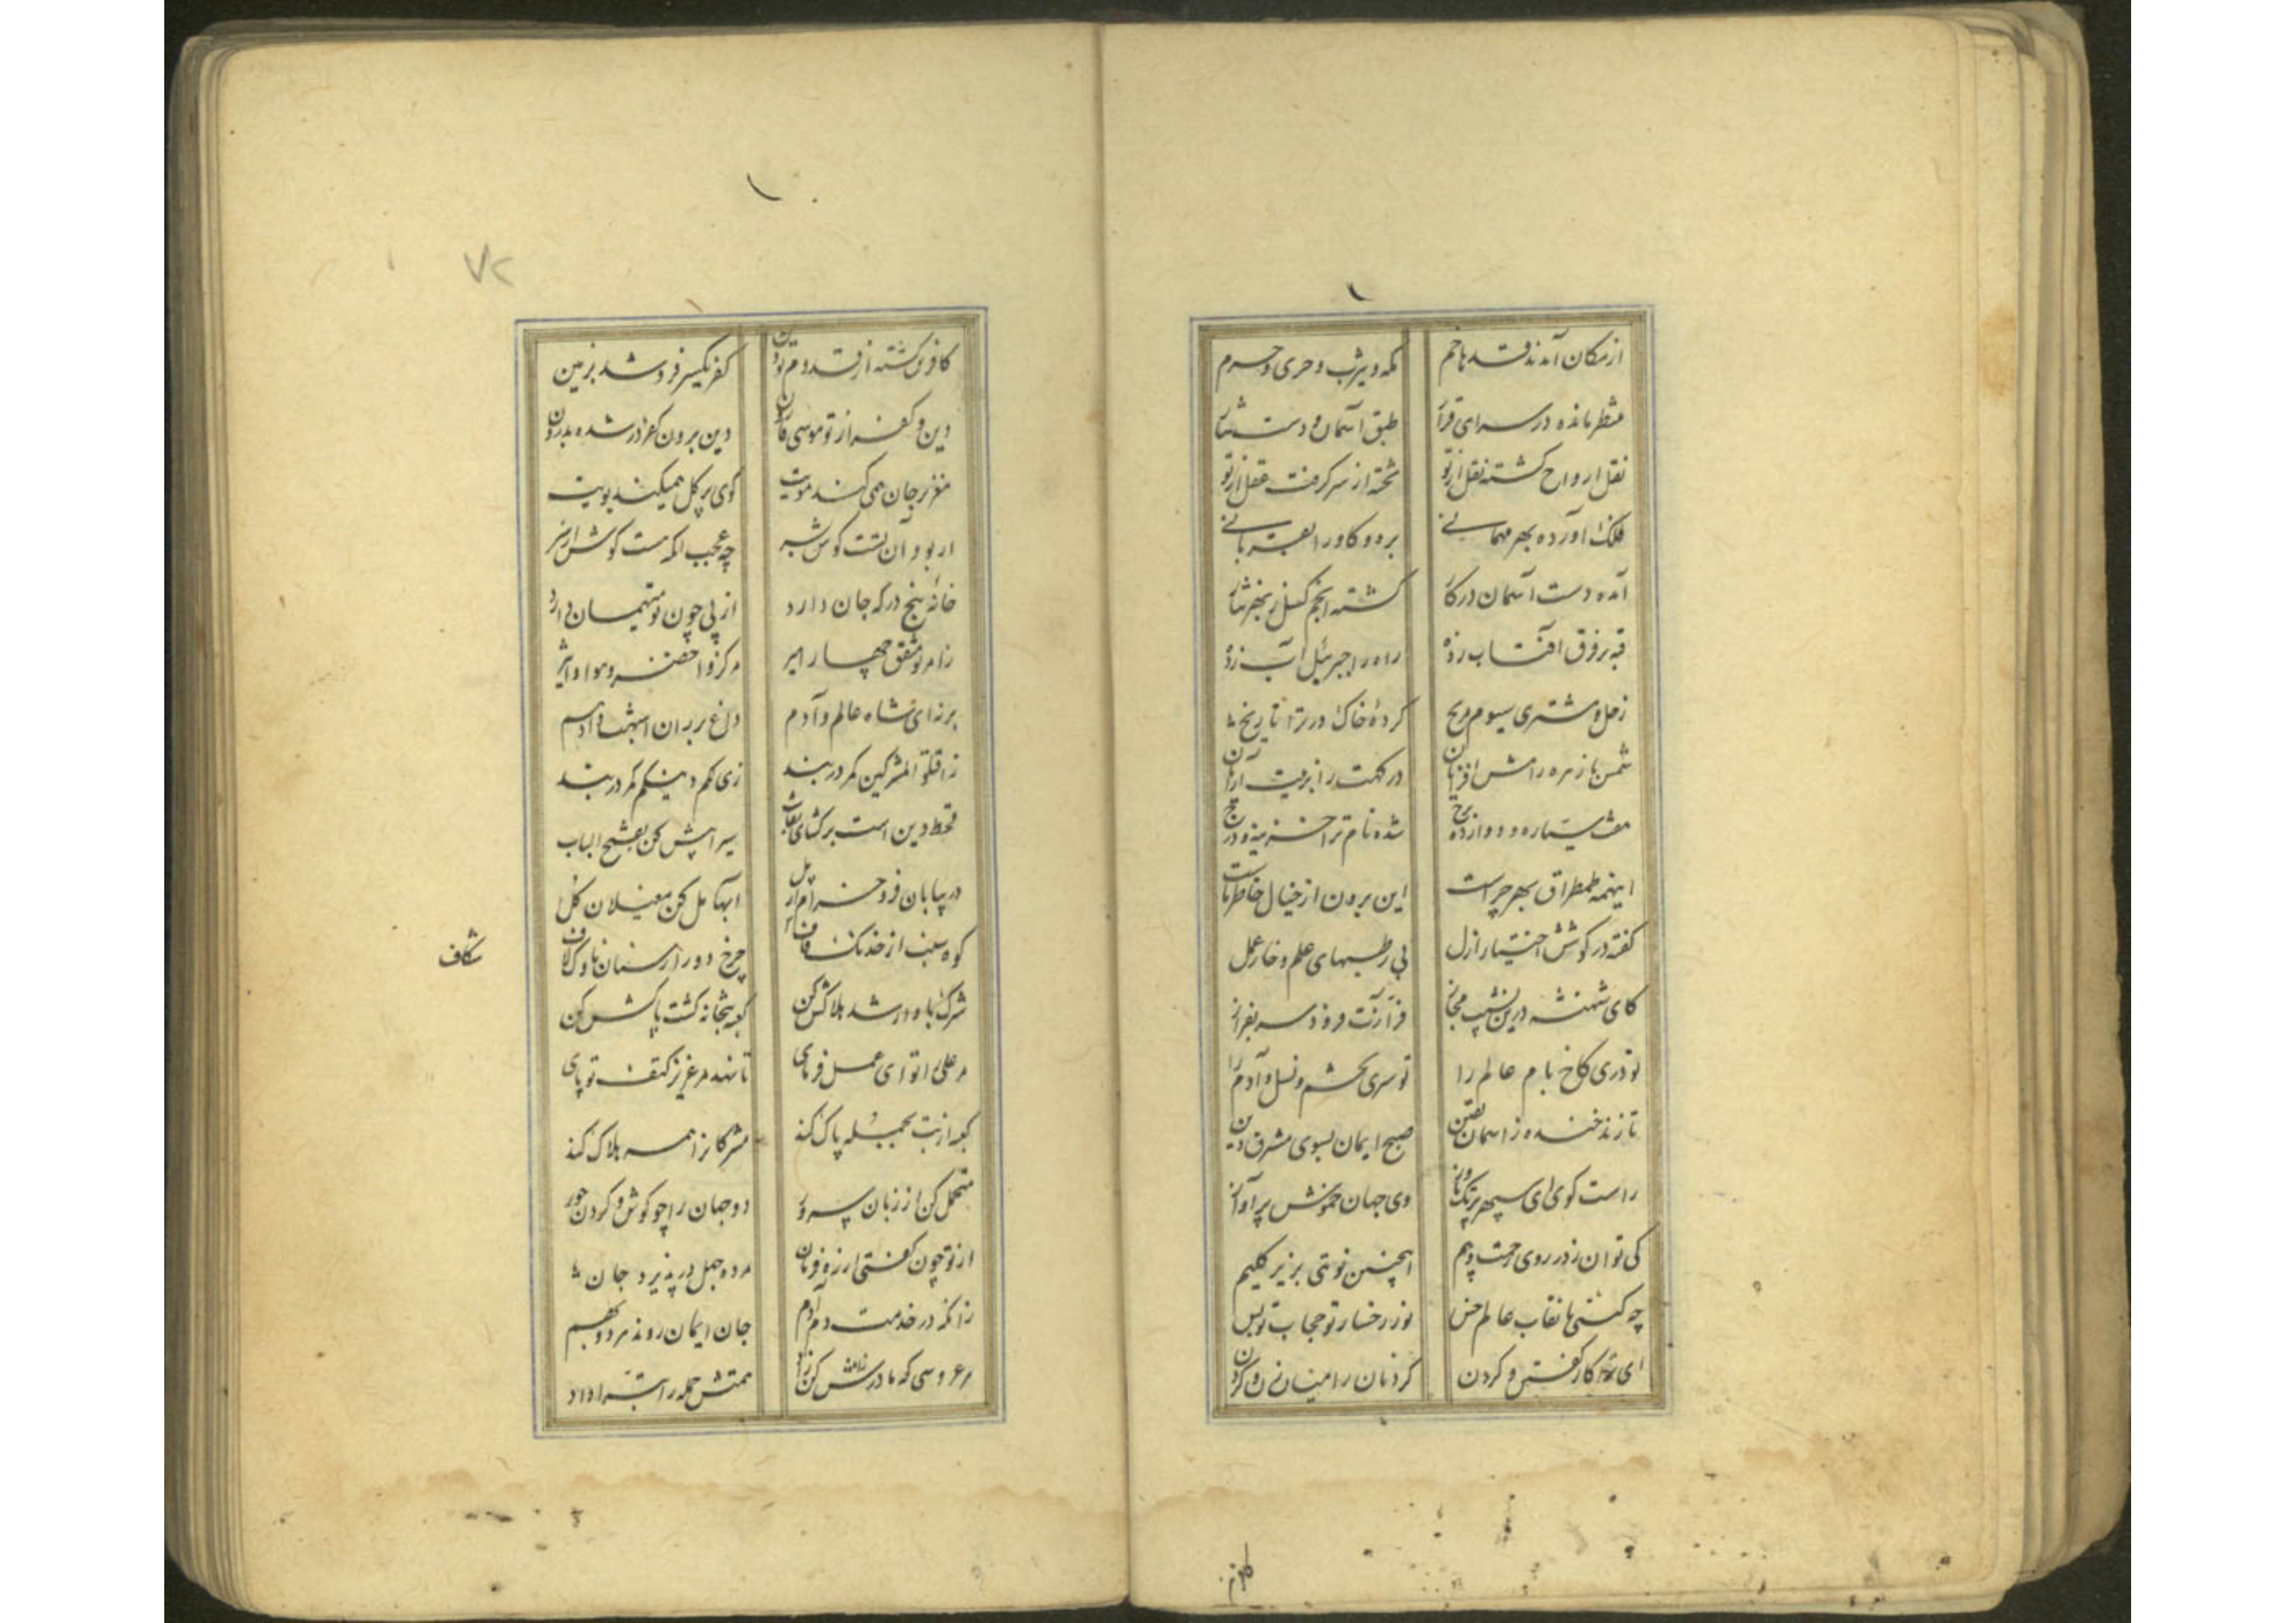 ۱
از مکان آمدند قدها خم مکه و یثرب و حری و حرم
منتظر مانده در سرای قرار طبق آسمان و دست نثار
نقل ارواح گشته نقل از تو تخته از سر گرفت عقل از تو
فلک آورده بهر مهمانی بره و گاو را بقربانی
آمده دست آسمان در کار گشته انجم گسل ز بهر نثار
قبه بر فرق آفتاب زده راه را جبرئیل آب زده
زحل و مشتری سیوم مریخ کرده خاک در ترا تاریخ
شمس با زهره رامش افزایان در کهت را بزینت آرایان
هفت سیاره و دوازده برج شده نام ترا خزینه و درج
اینهمه طمطراق بهر چراست این برون از خیال خاطر ماست
گفته در گوشش اختیار ازل بی رطبهای علم و خار عمل
کای شهنشه درین نشیب مجاز فرازت فرود سر بفراز
تو دری کاخ بام عالم را تو سری چشم و نسل آدم را
تا زند خنده ز آسمان یقین صبح ایمان بسوی مشرق دین
راست گوی ای سپهر پرتک و تاز وی جهان خموش پر آواز
کی توان زد در روی رحمت و بیم اینچنین نوبتی بزیر گلیم
چه کنی با نقاب عالم خس نور رخسار تو حجاب تو بس
ای ترا کار گفتن و کردن گردنان را میان نی و گردن
کافرم
۱
۷۲
کافری گشته از قدوم تو دین کفر یکسر فرو شد بزمین
دین و کفر از تو موسی و قارون دین برون کفر در شده بدرون
مغز بر جان همی کند مویت گوی پر گل همیکند بویت
ار بود آن تنت گوش شبه چه عجب آنکه هست گوش از سر
خانه پنج در که جان دارد از پی چون تو میهمان دارد
ز امر تو متفق چهار امیر مرکز و اخضر و هوا و اثیر
برزن ای شاه عالم و آدم داغ بر ران اشهب و ادهم
ز اقتلوا المشرکین کمر در بند زی لکم دینکم کمر در بند
قحط دین است برگشای نقاب سیرابش کن بفتح الباب
در بیابان فرو خرام از پل آبها مل کن مغیلان گل
کوه سنب از خدنگ قاف شکاف چرخ دوز از سنان ناوک لاف
شکاف
شرک با داد شد هلاکش کن کعبه بتخانه گشت پاکش کن
مر علی را تو ای عمل فرمای تا نهد مر عزیز کتف تو پای
کعبه از بت بجمله پاک کند مشرکانرا همه هلاک کند
متحمل کن از زبان سرور دو جهان را چو گوش و گردن حور
از تو چون گفتی از ره فرمان مرده جهل در پذیرد جان
زانکه در خدمت دم آدم جان ایمان روند هر دو بهم
هر عروسی که مادرش کن زاد همتش جمله را سه داد